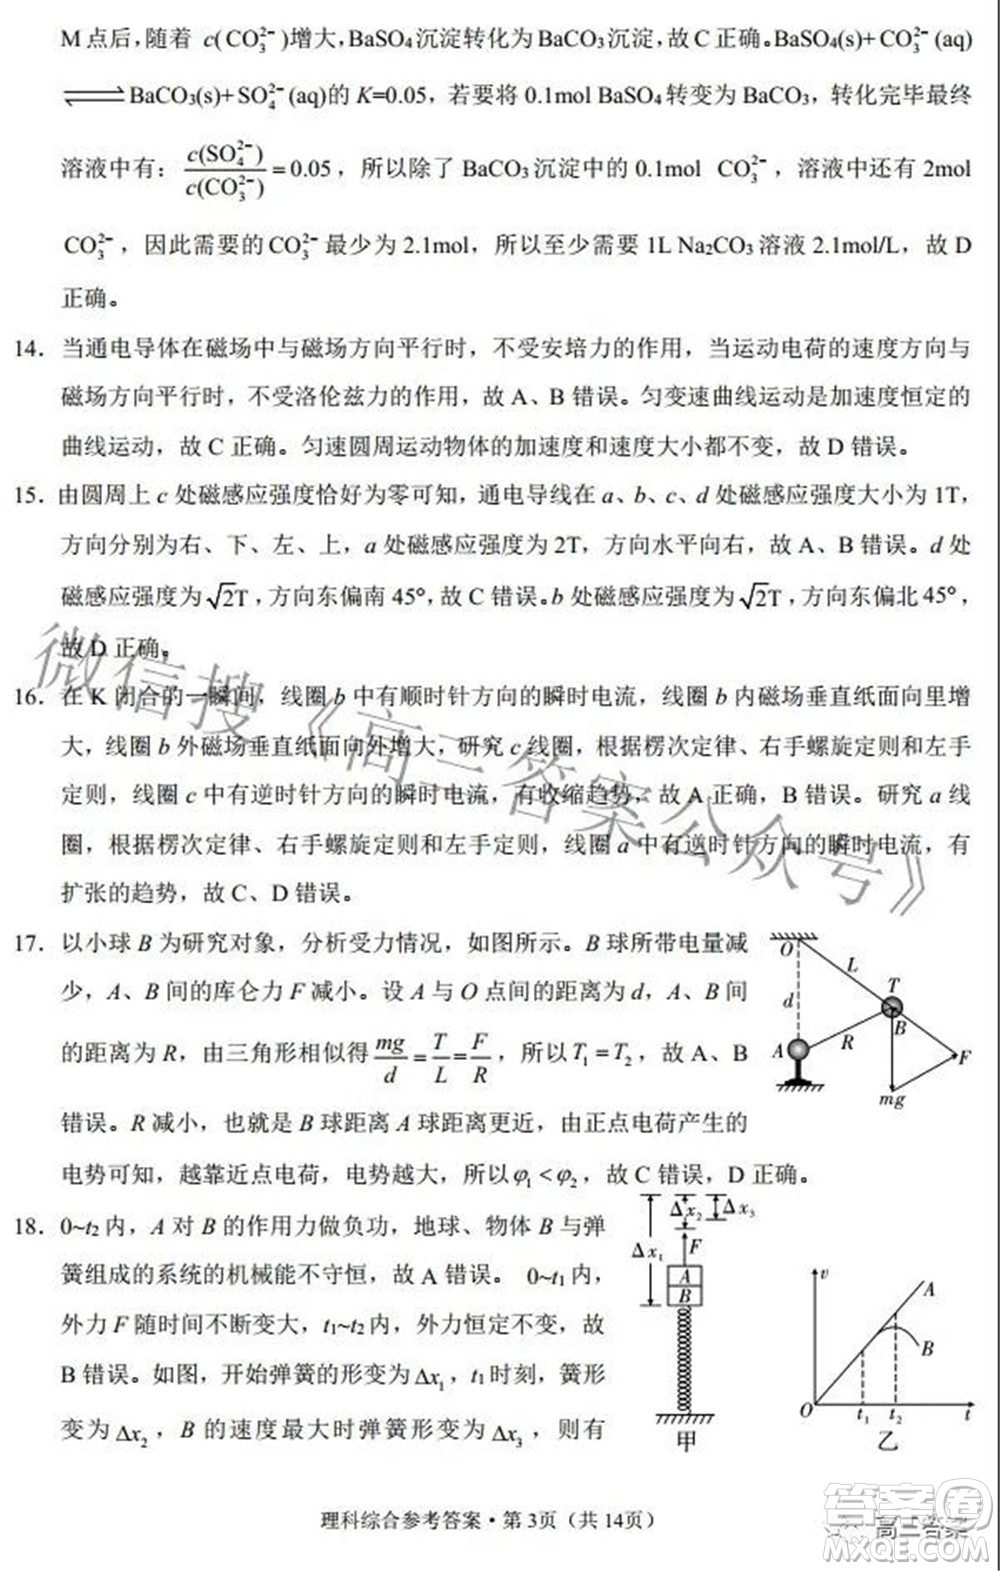 M 点后，随着 c(CO₃²⁻)增大，BaSO₄沉淀转化为BaCO₃沉淀，故 C 正确。BaSO₄(s)+CO₃²⁻(aq)
⇌BaCO₃(s)+SO₄²⁻(aq)的 K=0.05，若要将 0.1mol BaSO₄转变为 BaCO₃，转化完毕最终
溶液中有：c(SO₄²⁻)/c(CO₃²⁻)=0.05，所以除了 BaCO₃沉淀中的 0.1mol CO₃²⁻，溶液中还有 2mol
CO₃²⁻，因此需要的CO₃²⁻最少为 2.1mol，所以至少需要 1L Na₂CO₃溶液 2.1mol/L，故 D
正确。
14．当通电导体在磁场中与磁场方向平行时，不受安培力的作用，当运动电荷的速度方向与
磁场方向平行时，不受洛伦兹力的作用，故 A、B 错误。匀变速曲线运动是加速度恒定的
曲线运动，故 C 正确。匀速圆周运动物体的加速度和速度大小都不变，故 D 错误。
15．由圆周上 c 处磁感应强度恰好为零可知，通电导线在 a、b、c、d 处磁感应强度大小为 1T，
方向分别为右、下、左、上，a 处磁感应强度为 2T，方向水平向右，故 A、B 错误。d 处
磁感应强度为√2T，方向东偏南 45°，故 C 错误。b 处磁感应强度为√2T，方向东偏北 45°，
故 D 正确。
16．在 K 闭合的一瞬间，线圈 b 中有顺时针方向的瞬时电流，线圈 b 内磁场垂直纸面向里增
大，线圈 b 外磁场垂直纸面向外增大，研究 c 线圈，根据楞次定律、右手螺旋定则和左手
定则，线圈 c 中有逆时针方向的瞬时电流，有收缩趋势，故 A 正确，B 错误。研究 a 线
圈，根据楞次定律、右手螺旋定则和左手定则，线圈 a 中有逆时针方向的瞬时电流，有
扩张的趋势，故 C、D 错误。
17．以小球 B 为研究对象，分析受力情况，如图所示。B 球所带电量减
少，A、B 间的库仑力 F 减小。设 A 与 O 点间的距离为 d，A、B 间
的距离为 R，由三角形相似得mg/d=T/L=F/R，所以T₁=T₂，故 A、B
错误。R 减小，也就是 B 球距离 A 球更近，由正点电荷产生的
电势可知，越靠近点电荷，电势越大，所以φ₁<φ₂，故 C 错误，D 正确。
O
L
T
d
A
R
B
F
mg
18．0~t₂内，A 对 B 的作用力做负功，地球、物体 B 与弹
簧组成的系统的机械能不守恒，故 A 错误。 0~t₁内，
外力 F 随时间不断变大，t₁~t₂内，外力恒定不变，故
B 错误。如图，开始弹簧的形变为Δx₁，t₁时刻，簧形
变为Δx₂，B 的速度最大时弹簧形变为Δx₃，则有
Δx₂ Δx₃
Δx₁
F
A
B
甲
v
A
B
O t₁ t₂ t
乙
理科综合参考答案·第 3页（共 14页）
微信搜《高三答案公众号》
答案卷
高三答案
MXQE.COM